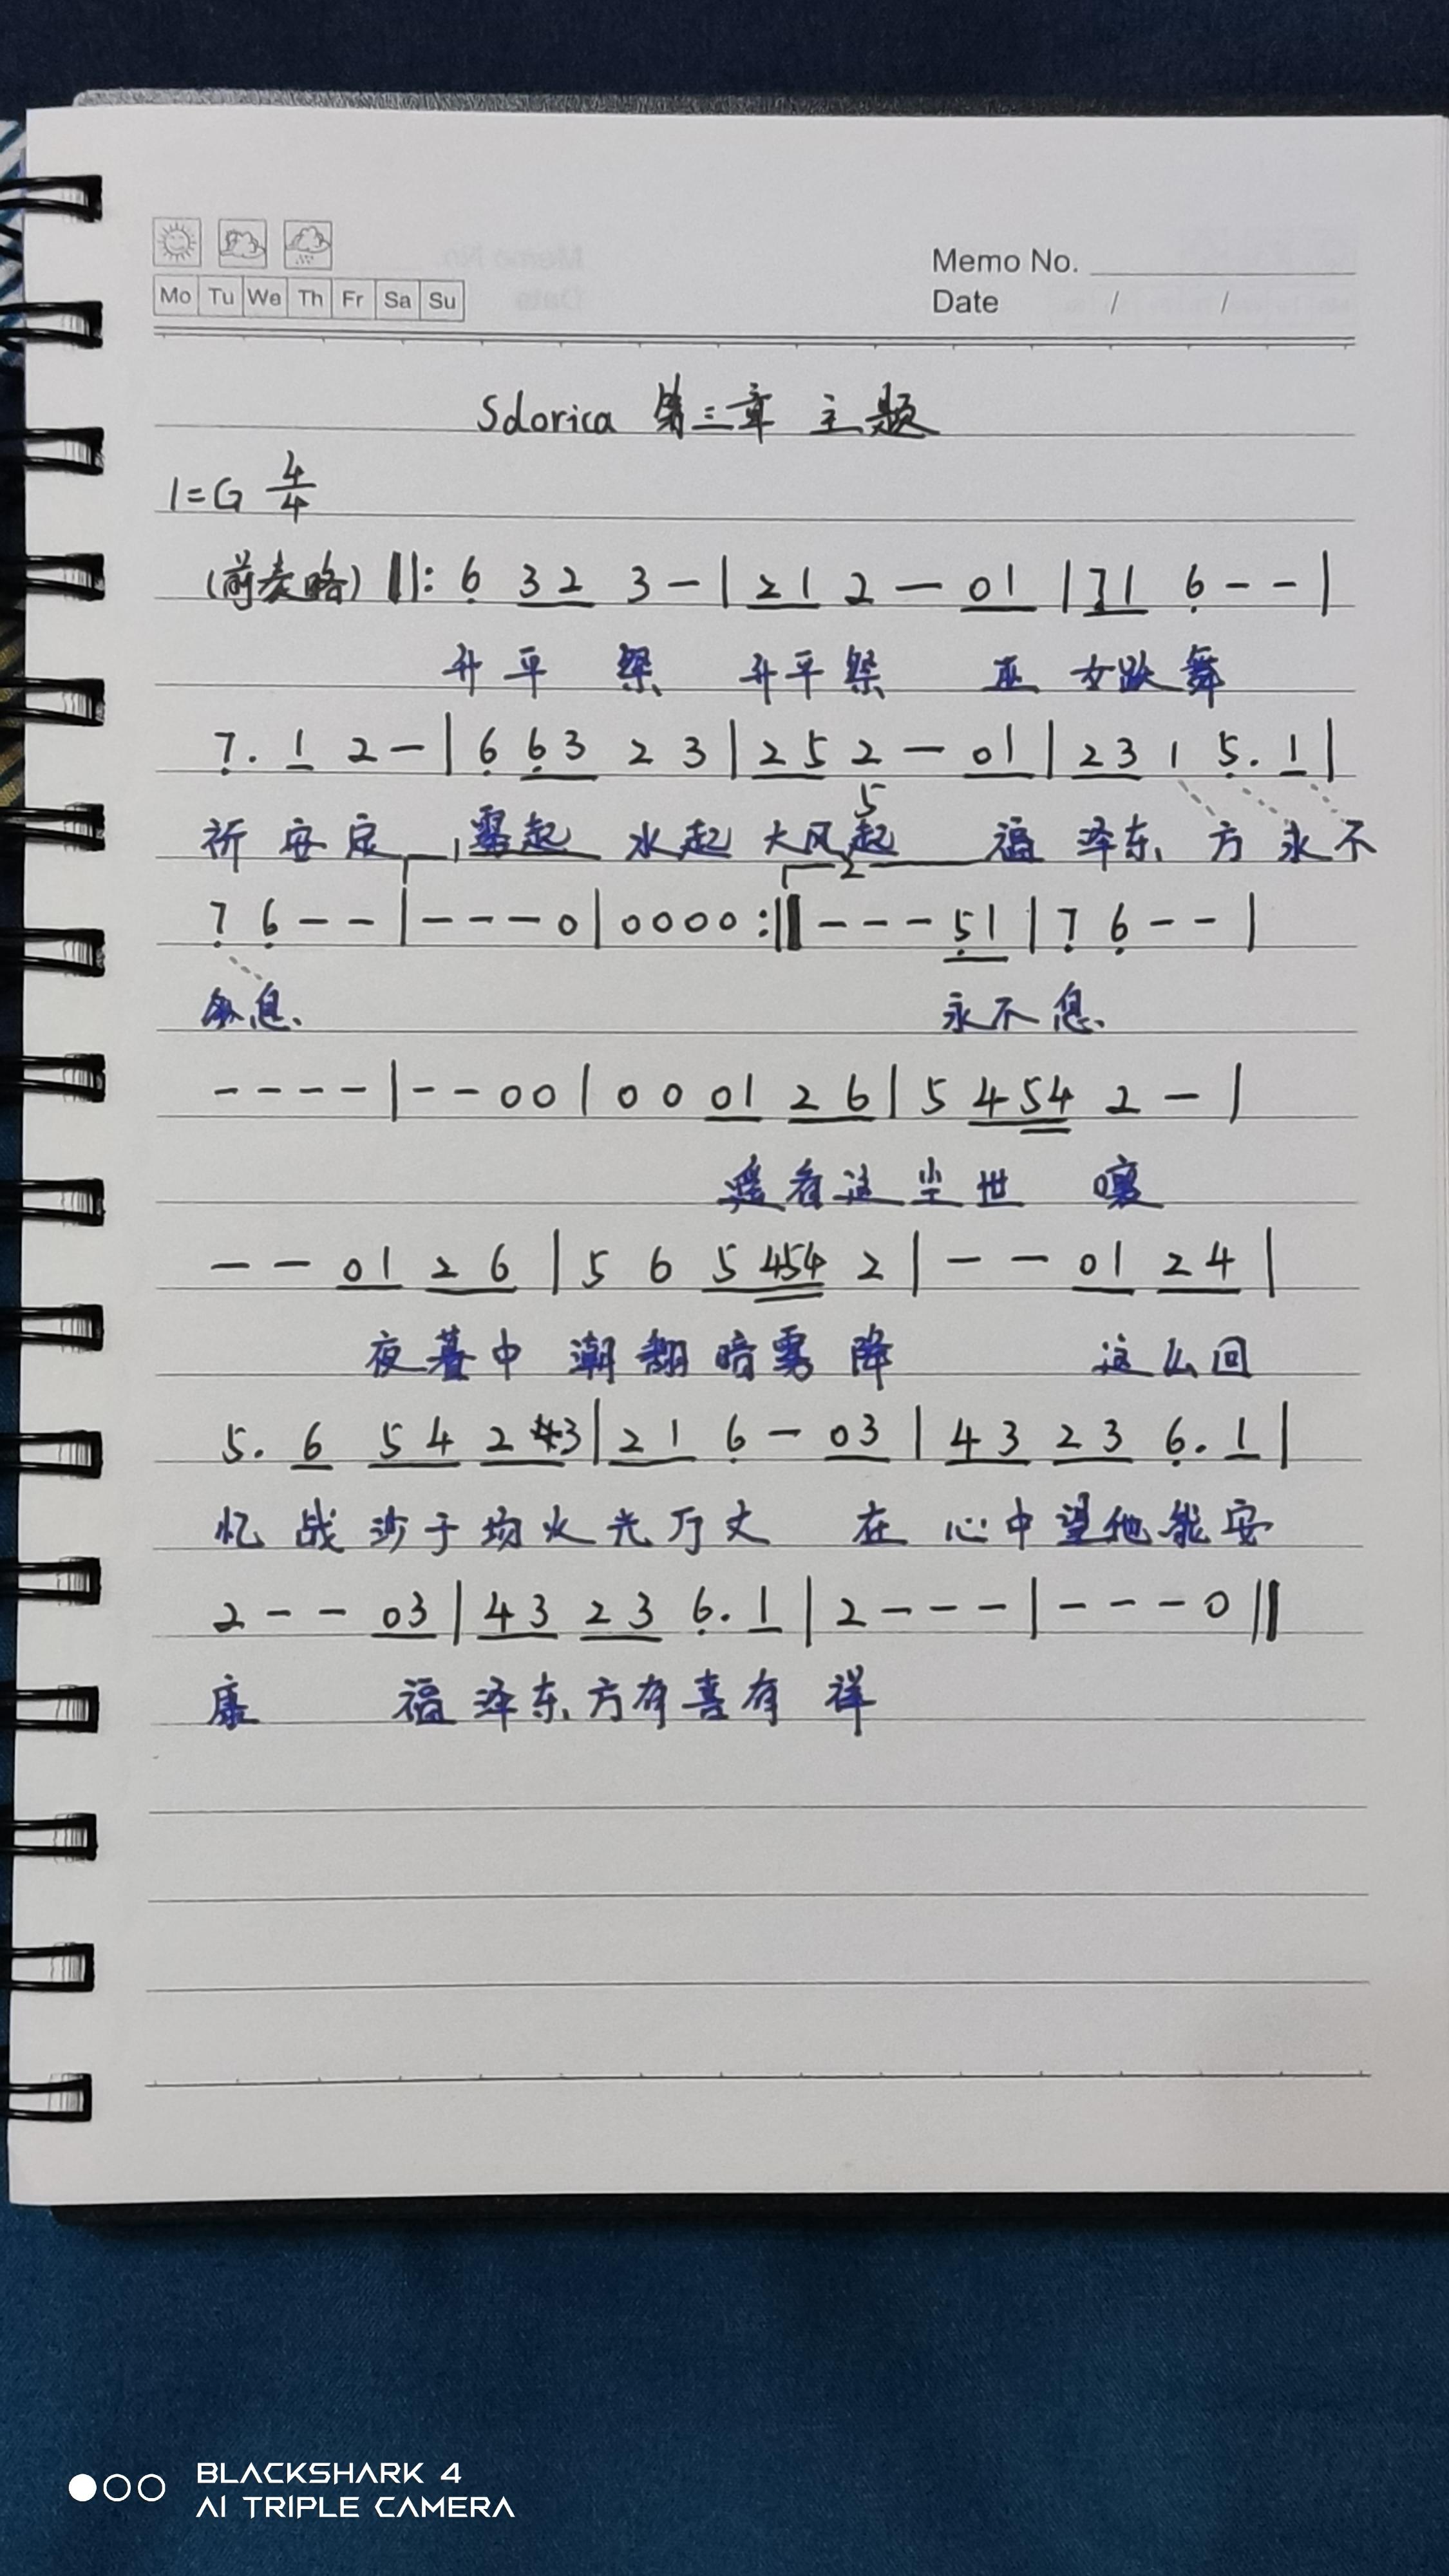 Memo No.
Mo Tu We Th Fr Sa Su
Date / /
Sdorica 第三章 主题
1=G 4/4
(前奏略) ‖: 6̣ 32 3 - | 21 2 - 01 | 7̣1 6̣ - - |
升平 祭 升平祭 巫 女跃舞
7̣. 1 2 - | 6̣ 6̣3 2 3 | 25 2 - 01 | 23 1 5̣. 1 |
5
祈安定 雾起 水起 大风起 福 泽东方永不
1 2
7̣ 6̣ - - | - - - 0 | 0000 :‖ - - - 5̣1 | 7̣ 6̣ - - |
息 永不息
- - - - | - - 00 | 0 0 01 26 | 5 454 2 - |
遥看这尘世 嚷
- - 01 26 | 5 6 5454 2 | - - 01 24 |
夜暮中 潮翻暗雾降 这么回
5. 6 54 23 | 21 6̣ - 03 | 43 23 6̣. 1 |
忆战沙于场火光万丈 在心中望他能安
2 - - 03 | 43 23 6̣. 1 | 2 - - - | - - - 0 ‖
康 福泽东方有喜有祥
BLACKSHARK 4
AI TRIPLE CAMERA